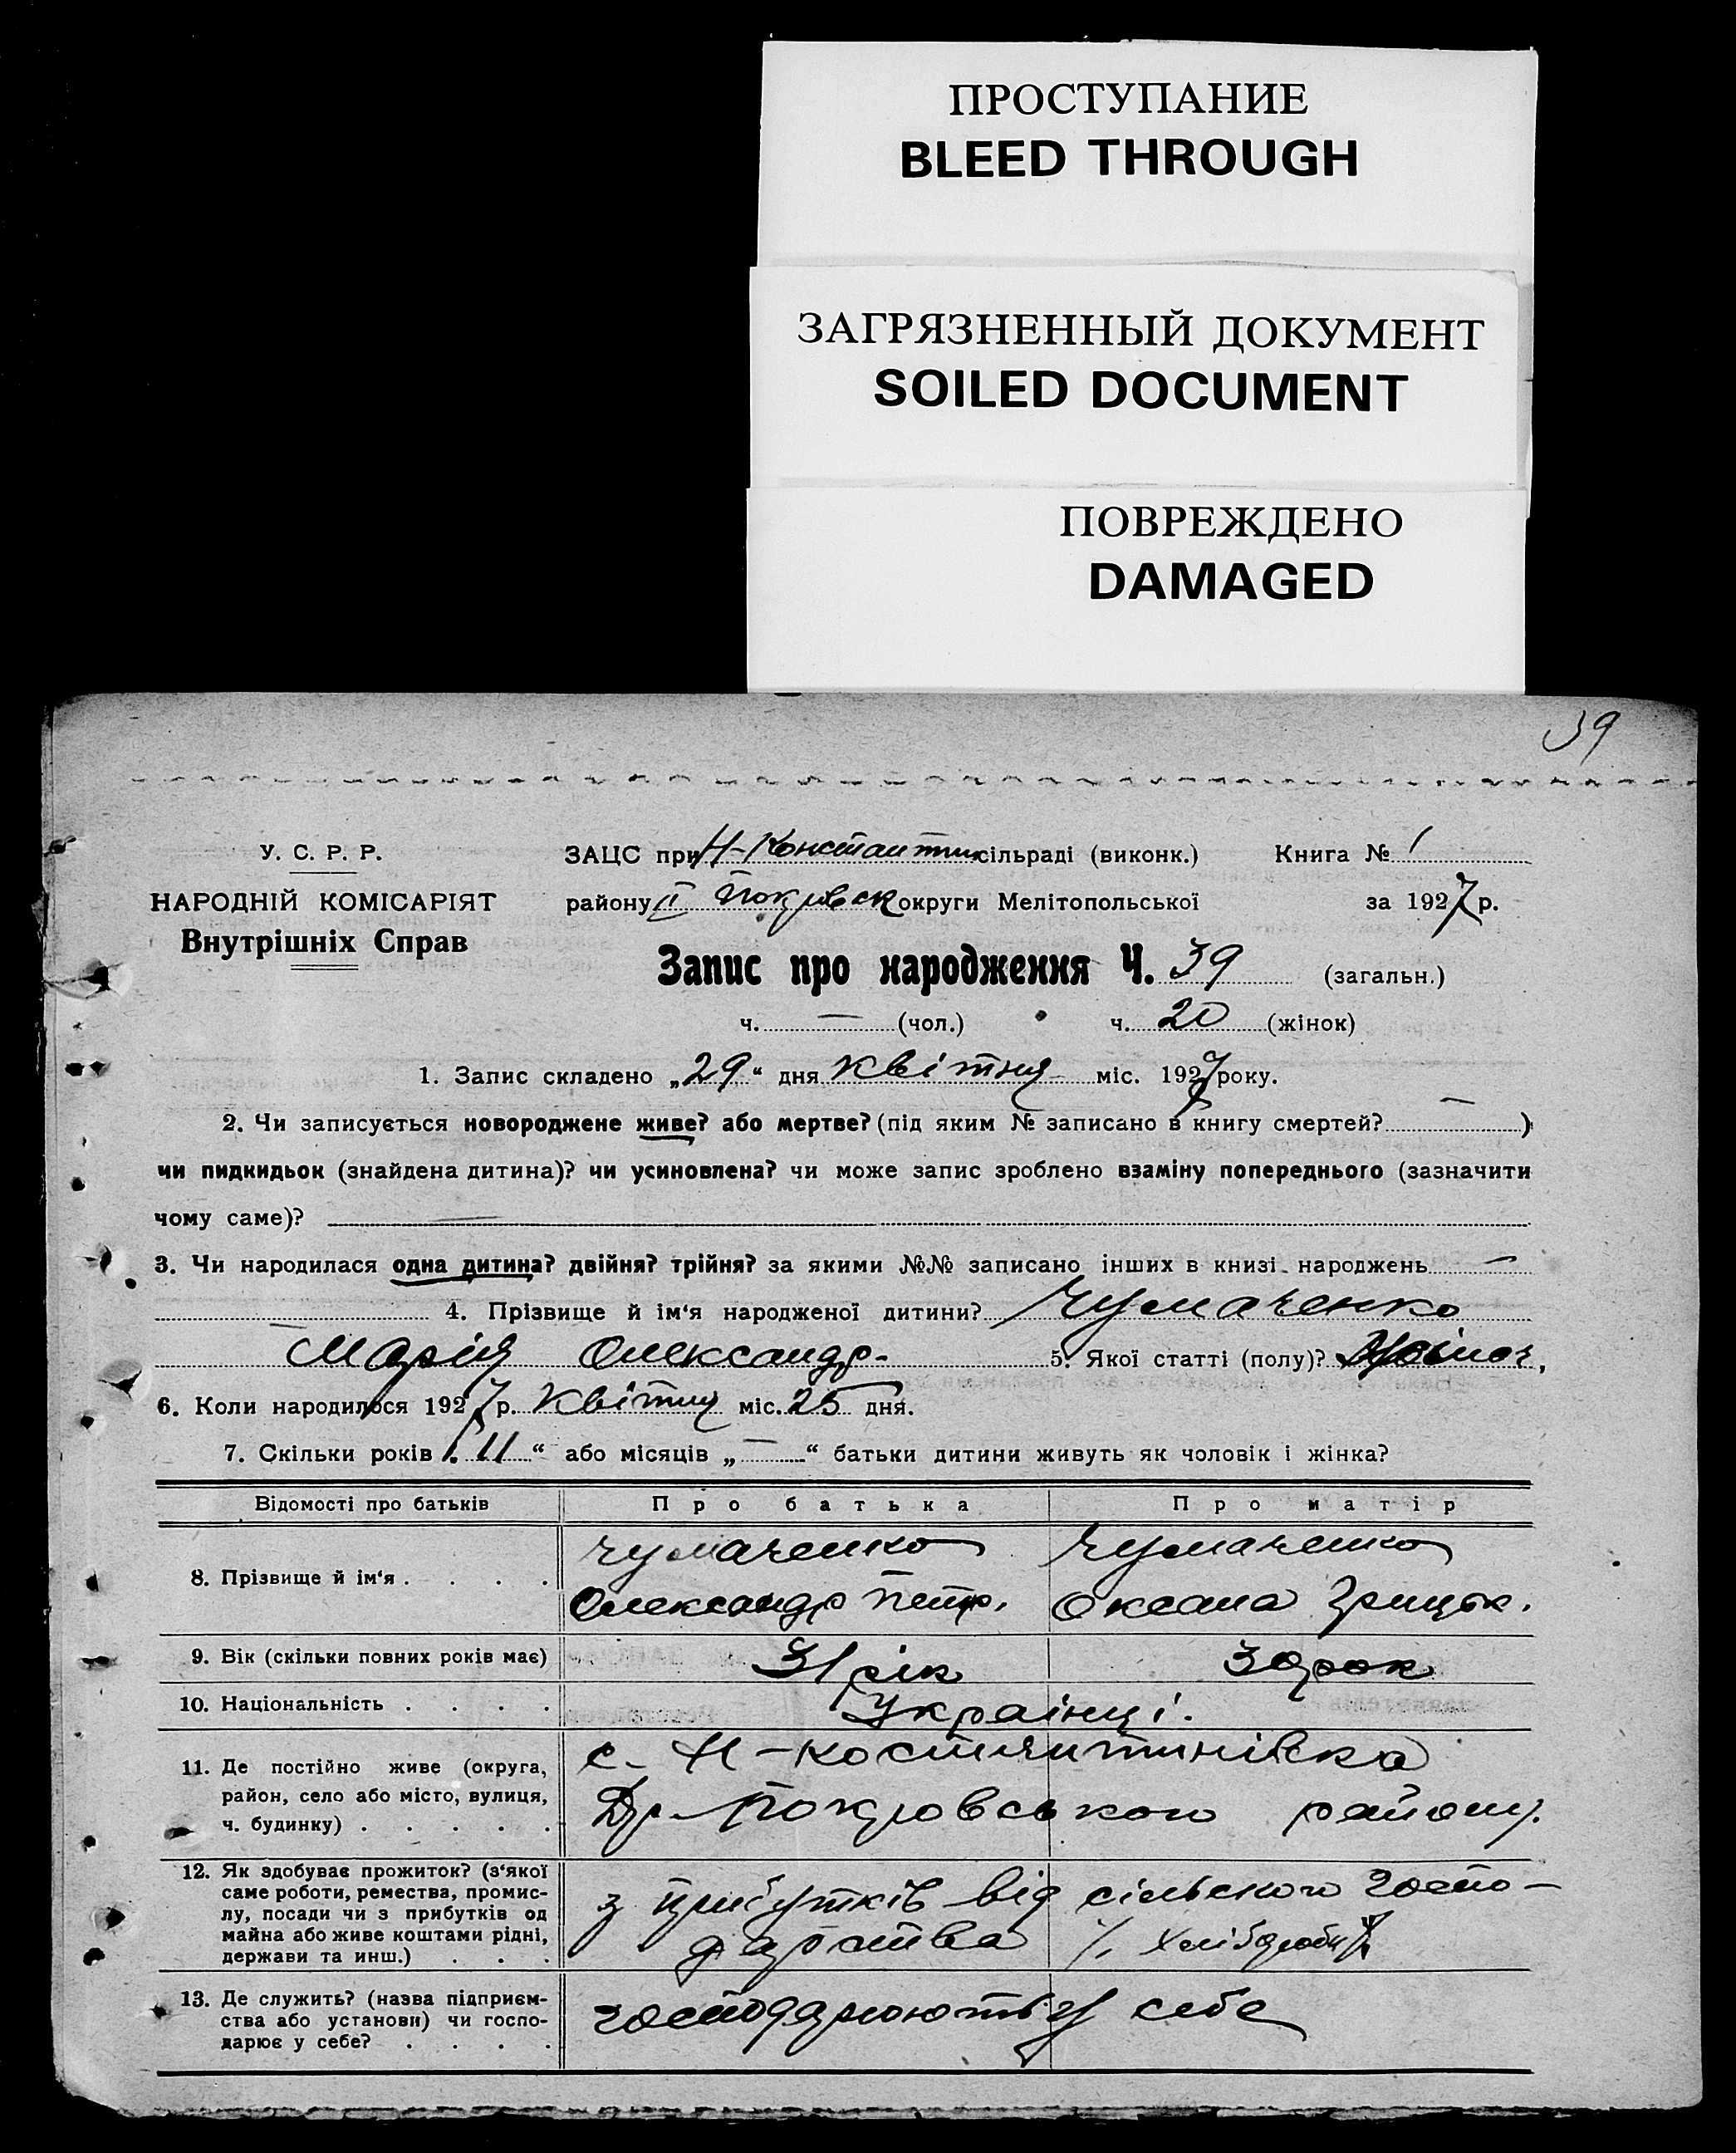 ПРОСТУПАНИЕ
BLEED THROUGH
ЗАГРЯЗНЕННЫЙ ДОКУМЕНТ
SOILED DOCUMENT
ПОВРЕЖДЕНО
DAMAGED
39
У. С. Р. Р.
НАРОДНІЙ КОМІСАРІЯТ
Внутрішніх Справ
ЗАЦС при Н-Констаптин сільраді (виконк.) Книга № 1
району II Покровск округи Мелітопольської за 1927 р.
Запис про народження Ч. 39 (загальн.)
ч. — (чол.) ч. 20 (жінок)
1. Запис складено „29“ дня квітня міс. 1927 року.
2. Чи записується новороджене живе? або мертве? (під яким № записано в книгу смертей? — )
чи пидкидьок (знайдена дитина)? чи усиновлена? чи може запис зроблено взаміну попереднього (зазначити
чому саме)? —
3. Чи народилася одна дитина? двійня? трійня? за якими №№ записано інших в книзі народжень —
4. Прізвище й ім‘я народженої дитини? Чумаченко
Марія Олександр. 5. Якої статті (полу)? Жіноч.
6. Коли народилося 1927 р. Квітня міс. 25 дня.
7. Скільки років 11 “ або місяців „ — “ батьки дитини живуть як чоловік і жінка?
Відомості про батьків Про батька Про матір
8. Прізвище й ім‘я . . . . Чумаченко Чумаченко
Олександр Петр. Оксана Грицьк.
9. Вік (скільки повних років має) 31 рік 30 рок
10. Національність . . . . Українці.
11. Де постійно живе (округа,
район, село або місто, вулиця,
ч. будинку) . . . . .
с. Н-Костянтинівка
Др. Покровського району.
12. Як здобуває прожиток? (з‘якої
саме роботи, ремества, промис-
лу, посади чи з прибутків од
майна або живе коштами рідні,
держави та инш.) . . .
з прибутків від сільського госпо-
дарства /. Хлібороби
13. Де служить? (назва підприєм-
ства або установи) чи госпо-
дарює у себе? . . . .
господарюють у себе